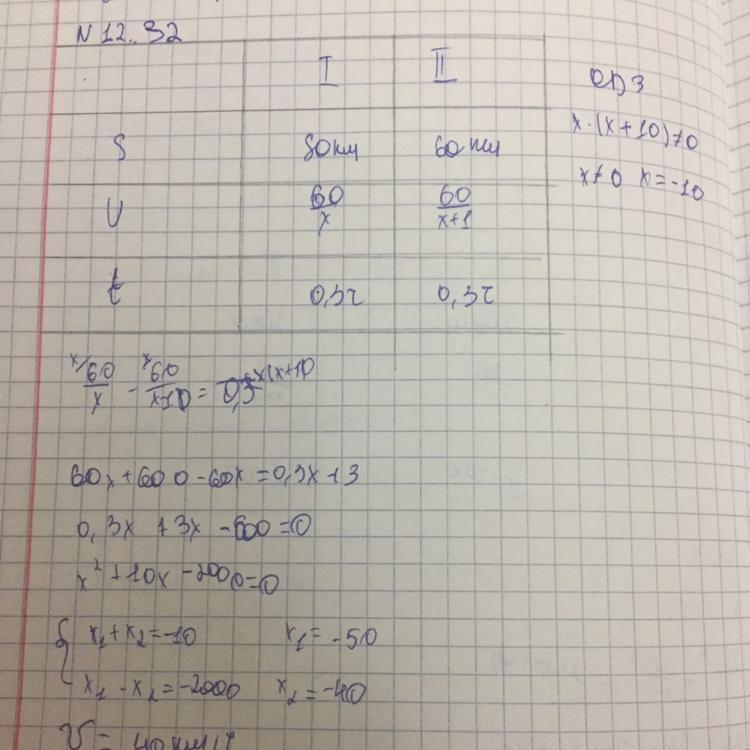 N 12.32
I II
S 80км 60км
U 60/x 60/x+1
t 0,3г 0,3г
ОДЗ
x·(x+10)≠0
x≠0 x=-10
x/60/x - x/60/x+10 = 0,3 x(x+10
60x+600-60x=0,3x+3
0,3x+3x-600=0
x²+10x-2000=0
{ x₁+x₂=-10 x₁=-50
x₁-x₂=-2000 x₂=-40
V= 40км/г